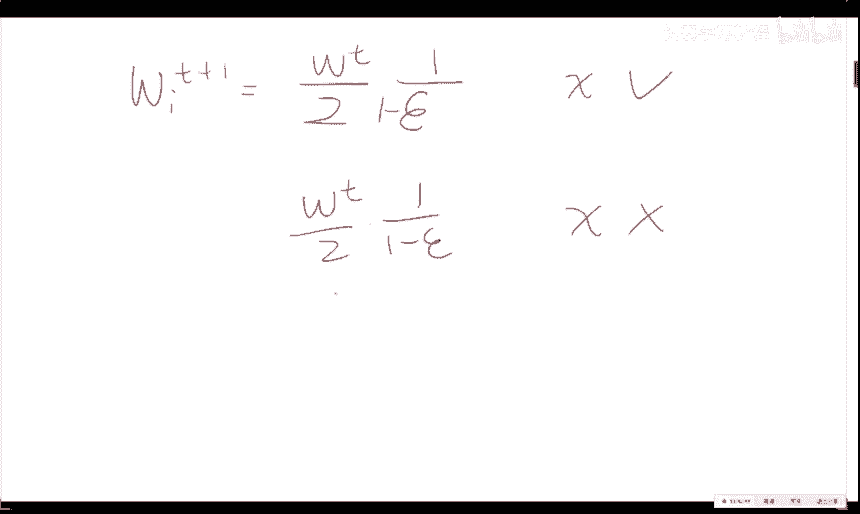 W_i^{t+1} = \frac{W^t}{2} \frac{1}{1-ε} x ✓
\frac{W^t}{2} \cdot \frac{1}{1-ε} x ×